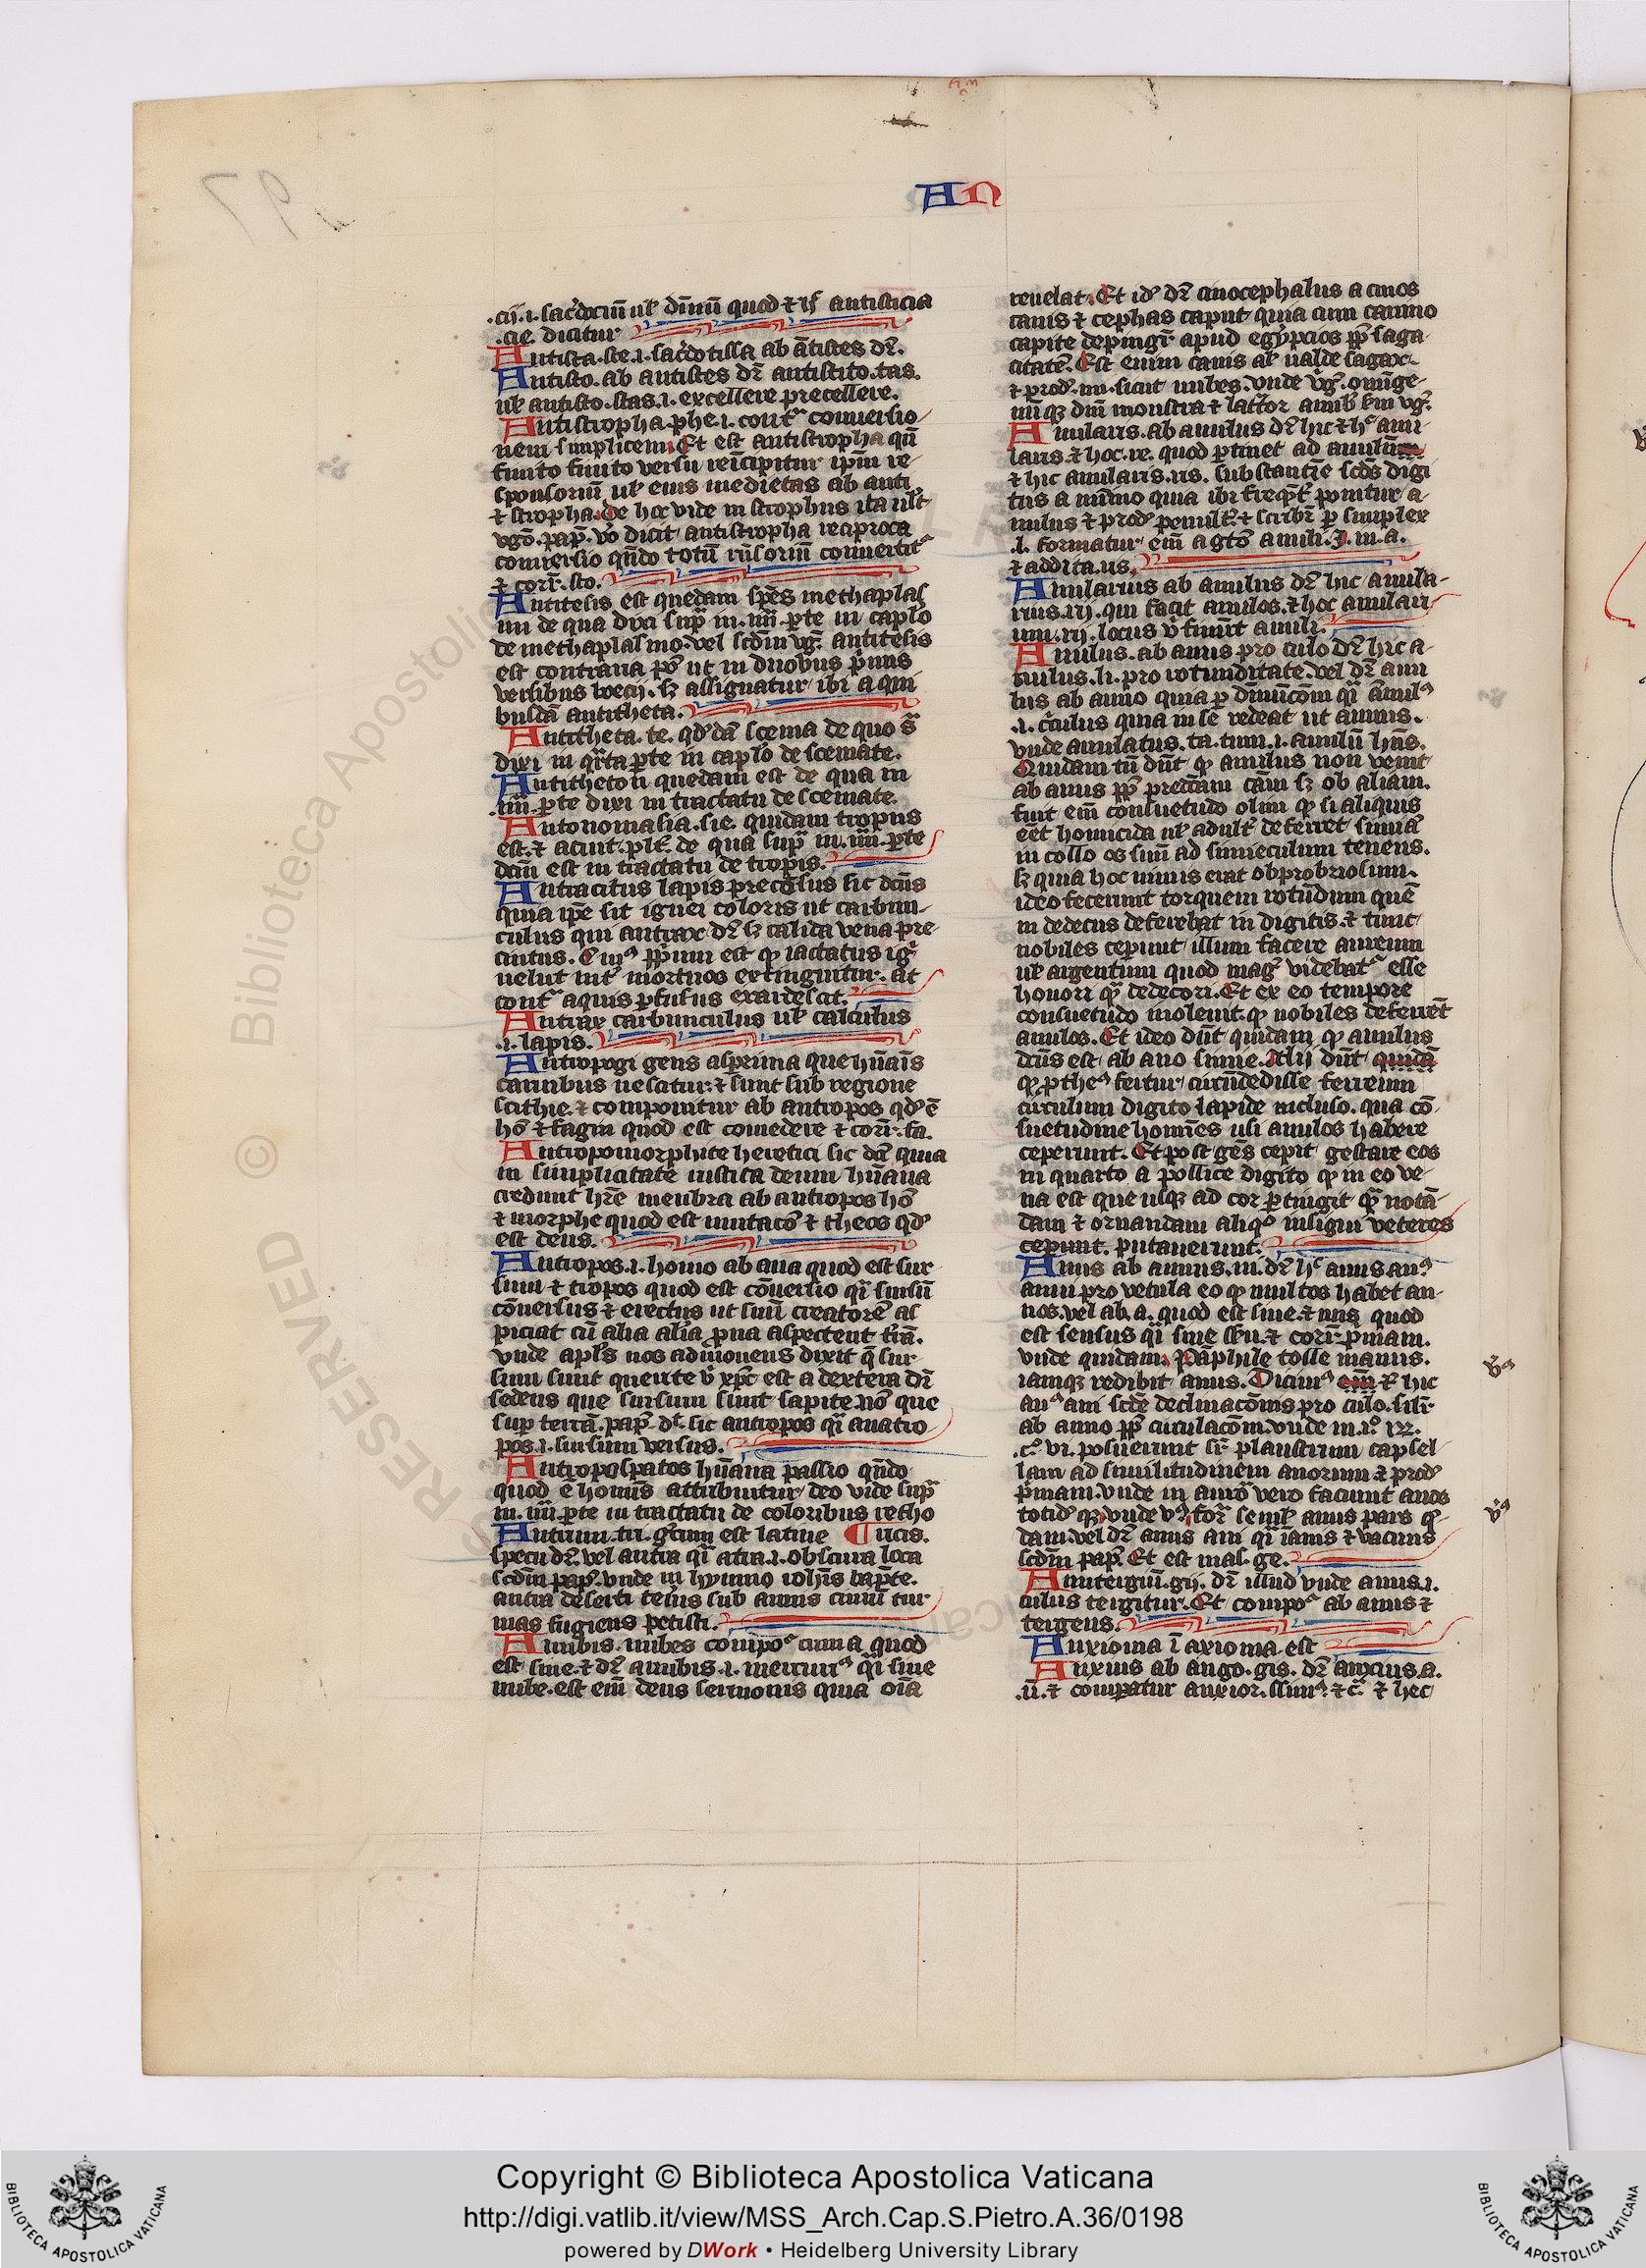 AN
.cij. i. sac̾dociũ uł dīnũ quod ⁊ is̾ antisticia
.cie. dicitur
Antista. ste. i. sac̾dotissa ab ãtistes dr̃.
Antisto. ab antistes dr̃ antistito. tas.
uł antisto. stas. i. excellere precellere.
Antistropha. phe. i. contͣ conuersio
nem simplicem. Et est antistropha qñ
finito finito versu reĩcipitur ip̃m re
sponsoriũ uł eius medietas ab anti
⁊ stropha. de hoc vide in strophus ita ult̾
vgõ. pap̃. ṽo dicit antistropha reciproca
conuersio qñdo totũ rñsoriũ conuertitᷣ
⁊ cor̃. sto.
Antitesis est quedam sp̃es methaplas
mi de qua dixi sup̃ in. iiii. ꝑte in cap̃lo
de methaplasmo. vel scd̃m vg̃. antitesis
est contraria põ ut in duobus p̃mis
versibus boecij. sꝫ assignatur ibi a qui
busdã antitheta.
Antitheta. te. qd̾dã scema de quo sͣ
dixi in qͣrta ꝑte in cap̃lo de scemate.
Antitheton quedam est de qua in
.iiii. ꝑte dixi in tractatu de scemate.
Antonomasia. sie. quidam tropus
est. ⁊ acuit. plt̃. de qua sup̃ in. iiii. ꝑte
dcm̃ est in tractatu de tropis.
Antracitus lapis preciosus sic dc̃us
quia ip̃e sit ignei coloris ut carbun-
culus qui antrax dr̃ sꝫ calida vena pre
cintus. Cuiꝰ ꝓp̃ium est ꝙ iactatus ig̃
uelut int̾ mortuos extinguitur. at
contͣ aquis ꝑfusus exardescit.
Antrax carbunculus uł calculus
.i. lapis.
Antropogi gens asperima que hũais
carnibus uescitur. ⁊ sunt sub regione
scithie. ⁊ componitur ab antropos qd̾ ẽ
hõ ⁊ fagin quod est comedere ⁊ cor̃. fa.
Antropomorphite heretici sic dc̃i quia
in simplicitate rustica deum hũana
credunt hr̃e menbra ab antropos hõ
⁊ morphe quod est mutac̃o ⁊ theos qd̾
est deus.
Antropos. i. homo ab ana quod est sur
sum ⁊ tropos quod est cõuersio qͣi sursũ
cõuersus ⁊ erectus ut suũ creatorẽ as
piciat cũ alia aĩalia ꝓna aspectent t̃rã.
vnde apl̃s nos admonens dixit q̃ sur
sum sunt querite vͥ xp̃c est a dextera dei
sedens que sursum sunt sapite nõ que
sup̃ terrã. pap̃. dt̃. sic antropos qͣi anatro
pos. i. sursum versus.
Antropospatos hũana passio qñdo
quod ẽ hominis attribuitur deo vide sup̃
in. iiii. ꝑte in tractatu de coloribus retho
Antrum. tri. gr̃cum est latine ¶ ricis.
specu dr̃. vel antra qͣi atra. i. obscura loca
scd̃m pap̃. vnde in hymno ioh̃is bapt̃e.
antra deserti teñis sub annis ciuiũ tur
mas fugiens petisti.
Anubis. nubes compoᷣ cum a quod
est sine. ⁊ dr̃ anubis. i. mercurꝰ qͣi sine
nube. est em̃ deus sermonis quia oĩa
reuelat. Et id̾ dr̃ cinocephalus a cinos
canis ⁊ cephas caput quia cum canino
capite depingr̃ apud egyptios ꝓp̃ saga
citatẽ. Est enim canis aĩal ualde sagax.
⁊ prod̾. nu. sicut nubes. vnde v̾g̃. omige-
nũqꝫ deũ monstra ⁊ latrator anub̾ sm̃ vg̃.
Anularis. ab anulus dr̃ hic ⁊ h̾ anu
laris ⁊ hoc. re. quod ꝑtinet ad anulũ
⁊ hic anularis. ris. substantiue scd̃s digi
tus a minimo quia ibi freqñt̾ ponitur a
nulus ⁊ prod̾ penult̾. ⁊ scribr̃ ꝑ simplex
.l. formatur em̃ a gt̃o anuli. I. in. a.
⁊ addita. us.
Anularius ab anulus dr̃ hic anula-
rius. rij. qui facit anulos. ⁊ hoc anulari
um. rij. locus vͥ fiunt anuli.
Anulus. ab anus pro culo dr̃ hic a-
nulus. li. pro rotunditate. vel dr̃ anu
lus ab anno quia ꝑ diminuc̃om qͣi ãnulꝰ
.i. circulus quia in se redeat ut annus.
vnde anulatus. ta. tum. i. anulũ hñs.
Quidam tñ dñt ꝙ anulus non venit
ab anus ꝓp̃ predc̃am cãm sꝫ ob aliam.
fuit em̃ consuetudo olim ꝙ si aliquis
eẽt homicida uł adult̾ deferret simiã
in collo os suũ ad simie culum tenens.
sꝫ quia hoc nimis erat obprobriosum.
ideo fecerunt torquem rotũdum quẽ
in dedecus deferebat in digitis. ⁊ tunc
nobiles ceperunt illum facere aureum
uł argenteum quod magꝭ videbatᷣ esse
honori qͣ dedecori. Et ex eo tempore
consuetudo inoleuit. ꝙ nobiles deferrẽt
anulos. Et ideo dñt quidam ꝙ anulus
dc̃us est ab ano simie. Alij dñt quidã
ꝙ ꝓtheꝰ fertur circũdedisse ferreum
circulum digito lapide incluso. qua cõ-
suetudine homĩes usi anulos habere
ceperunt. Et post gẽs cepit gestare eos
in quarto a pollice digito ꝙ in eo ve-
na est que usqꝫ ad cor ꝑtingit qͣ notã-
dam ⁊ ornandam aliqͦ insigni veteres
ceperunt. putauerunt.
Anus ab annus. ni. dr̃ h̾ anus anꝰ
anui pro vetula eo ꝙ multos habet an-
nos. vel ab. a. quod est sine. ⁊ nus quod
est sensus qͣi sine sẽsu. ⁊ cor̃. p̃mam.
vnde quidam. Pãphile tolle manus.
iamqꝫ redibit anus. Dicimꝰ em̃ ⁊ hic
anꝰ ani scd̃e declinac̃onis pro culo. silr̃
ab anno ꝓp̃ circulac̃om. vnde in. iͦ. rꝫ.
.cͦ. vi. posuerunt sr̃ plaustrum capsel
lam ad similitudinem anorum. ⁊ prod̾
p̃mam. vnde in auroͣ vero faciunt anos
totid̾qꝫ. vnde vꝰ. fert̾ senił anus pars q̃-
dam. vel dr̃ anus ani qͣi inanis ⁊ vacuus
scd̃m pap̃. Et est mas. ge.
Anutergiũ. gij. dr̃ illud vnde anus. i.
culus tergitur. Et compoᷣ ab anus ⁊
tergens.
Anxioma ĩ axioma est
Anxius ab ango. gis. dr̃ anxius. a.
.ũ. ⁊ comparatur anxior. ssimꝰ. ⁊ c̃. ⁊ hec
vꝰ
vꝰ
Copyright © Biblioteca Apostolica Vaticana
http://digi.vatlib.it/view/MSS_Arch.Cap.S.Pietro.A.36/0198
powered by DWork • Heidelberg University Library
BIBLIOTECA APOSTOLICA VATICANA
BIBLIOTECA APOSTOLICA VATICANA